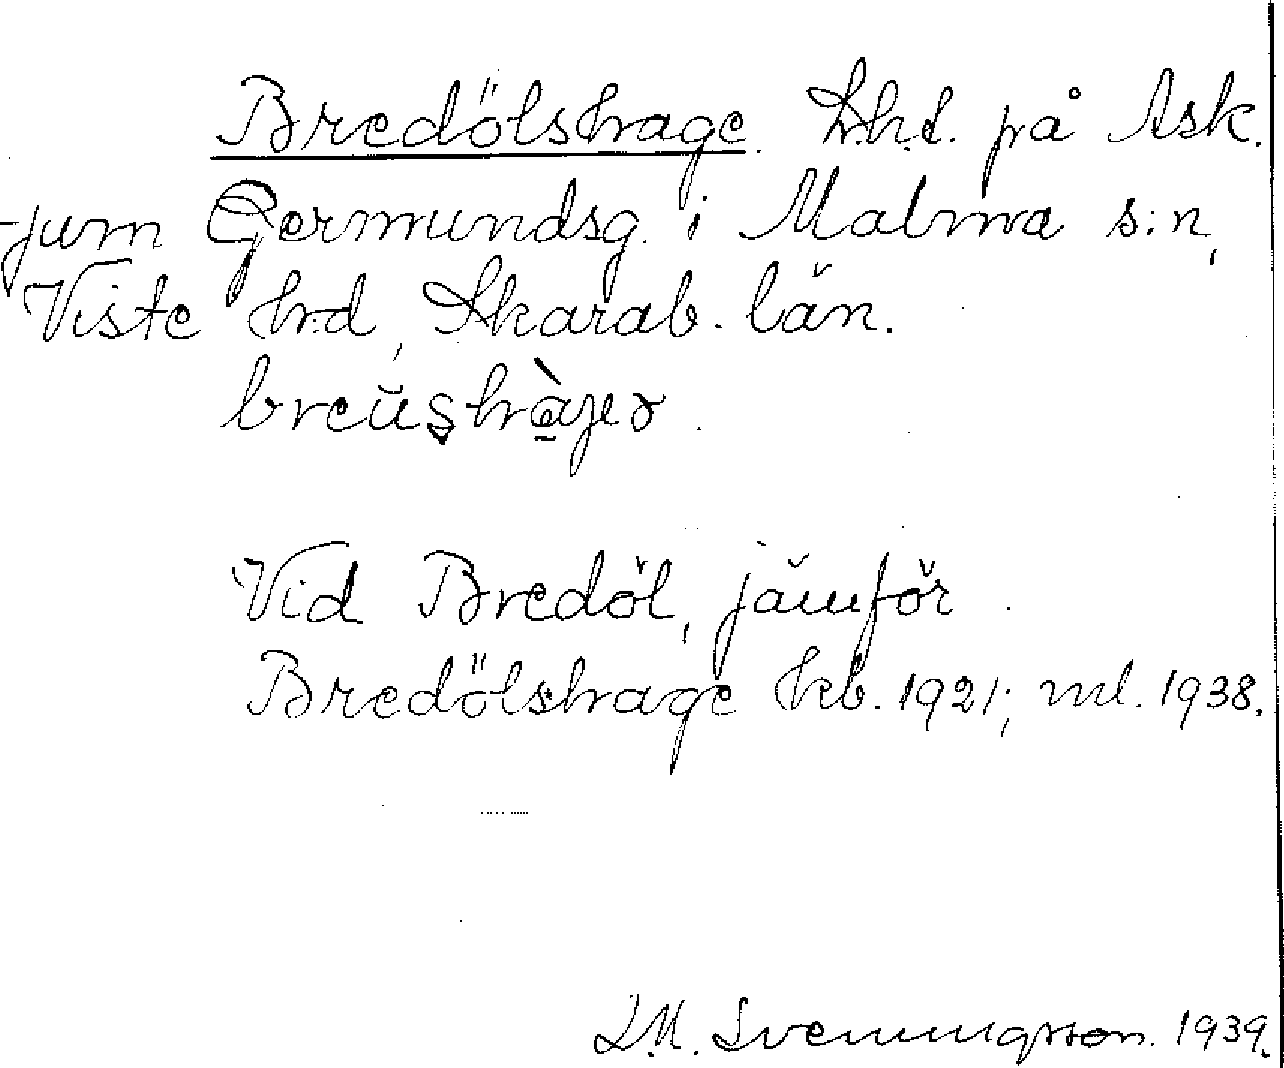 Bredölshage. Lht. på Ask-
jum Germundsg. i Malma s:n,
Viste hd, Skarab. län.
Vid Bredöl, jämför
Bredölshage hkb. 1921; ml. 1938.
D.M. Svenningsson. 1939.